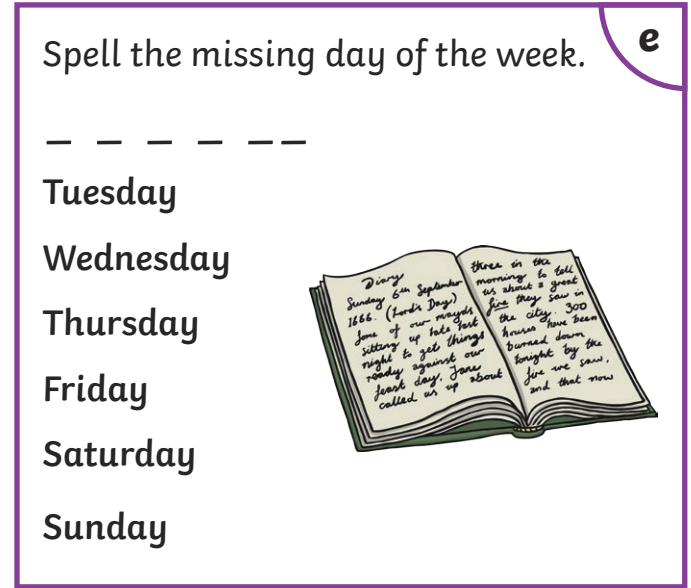 Spell the missing day of the week.
e
_ _ _ _ _ _
Tuesday
Wednesday
Thursday
Friday
Saturday
Sunday
Diary
Sunday 6th September
1666. (Lord's Day)
Some of our mayds
sitting up late last
night to get things
ready against our
feast day, Jane
called us up about
three in the
morning to tell
us about a great
fire they saw in
the city. 300
houses have been
burned down
tonight by the
fire we saw,
and that now